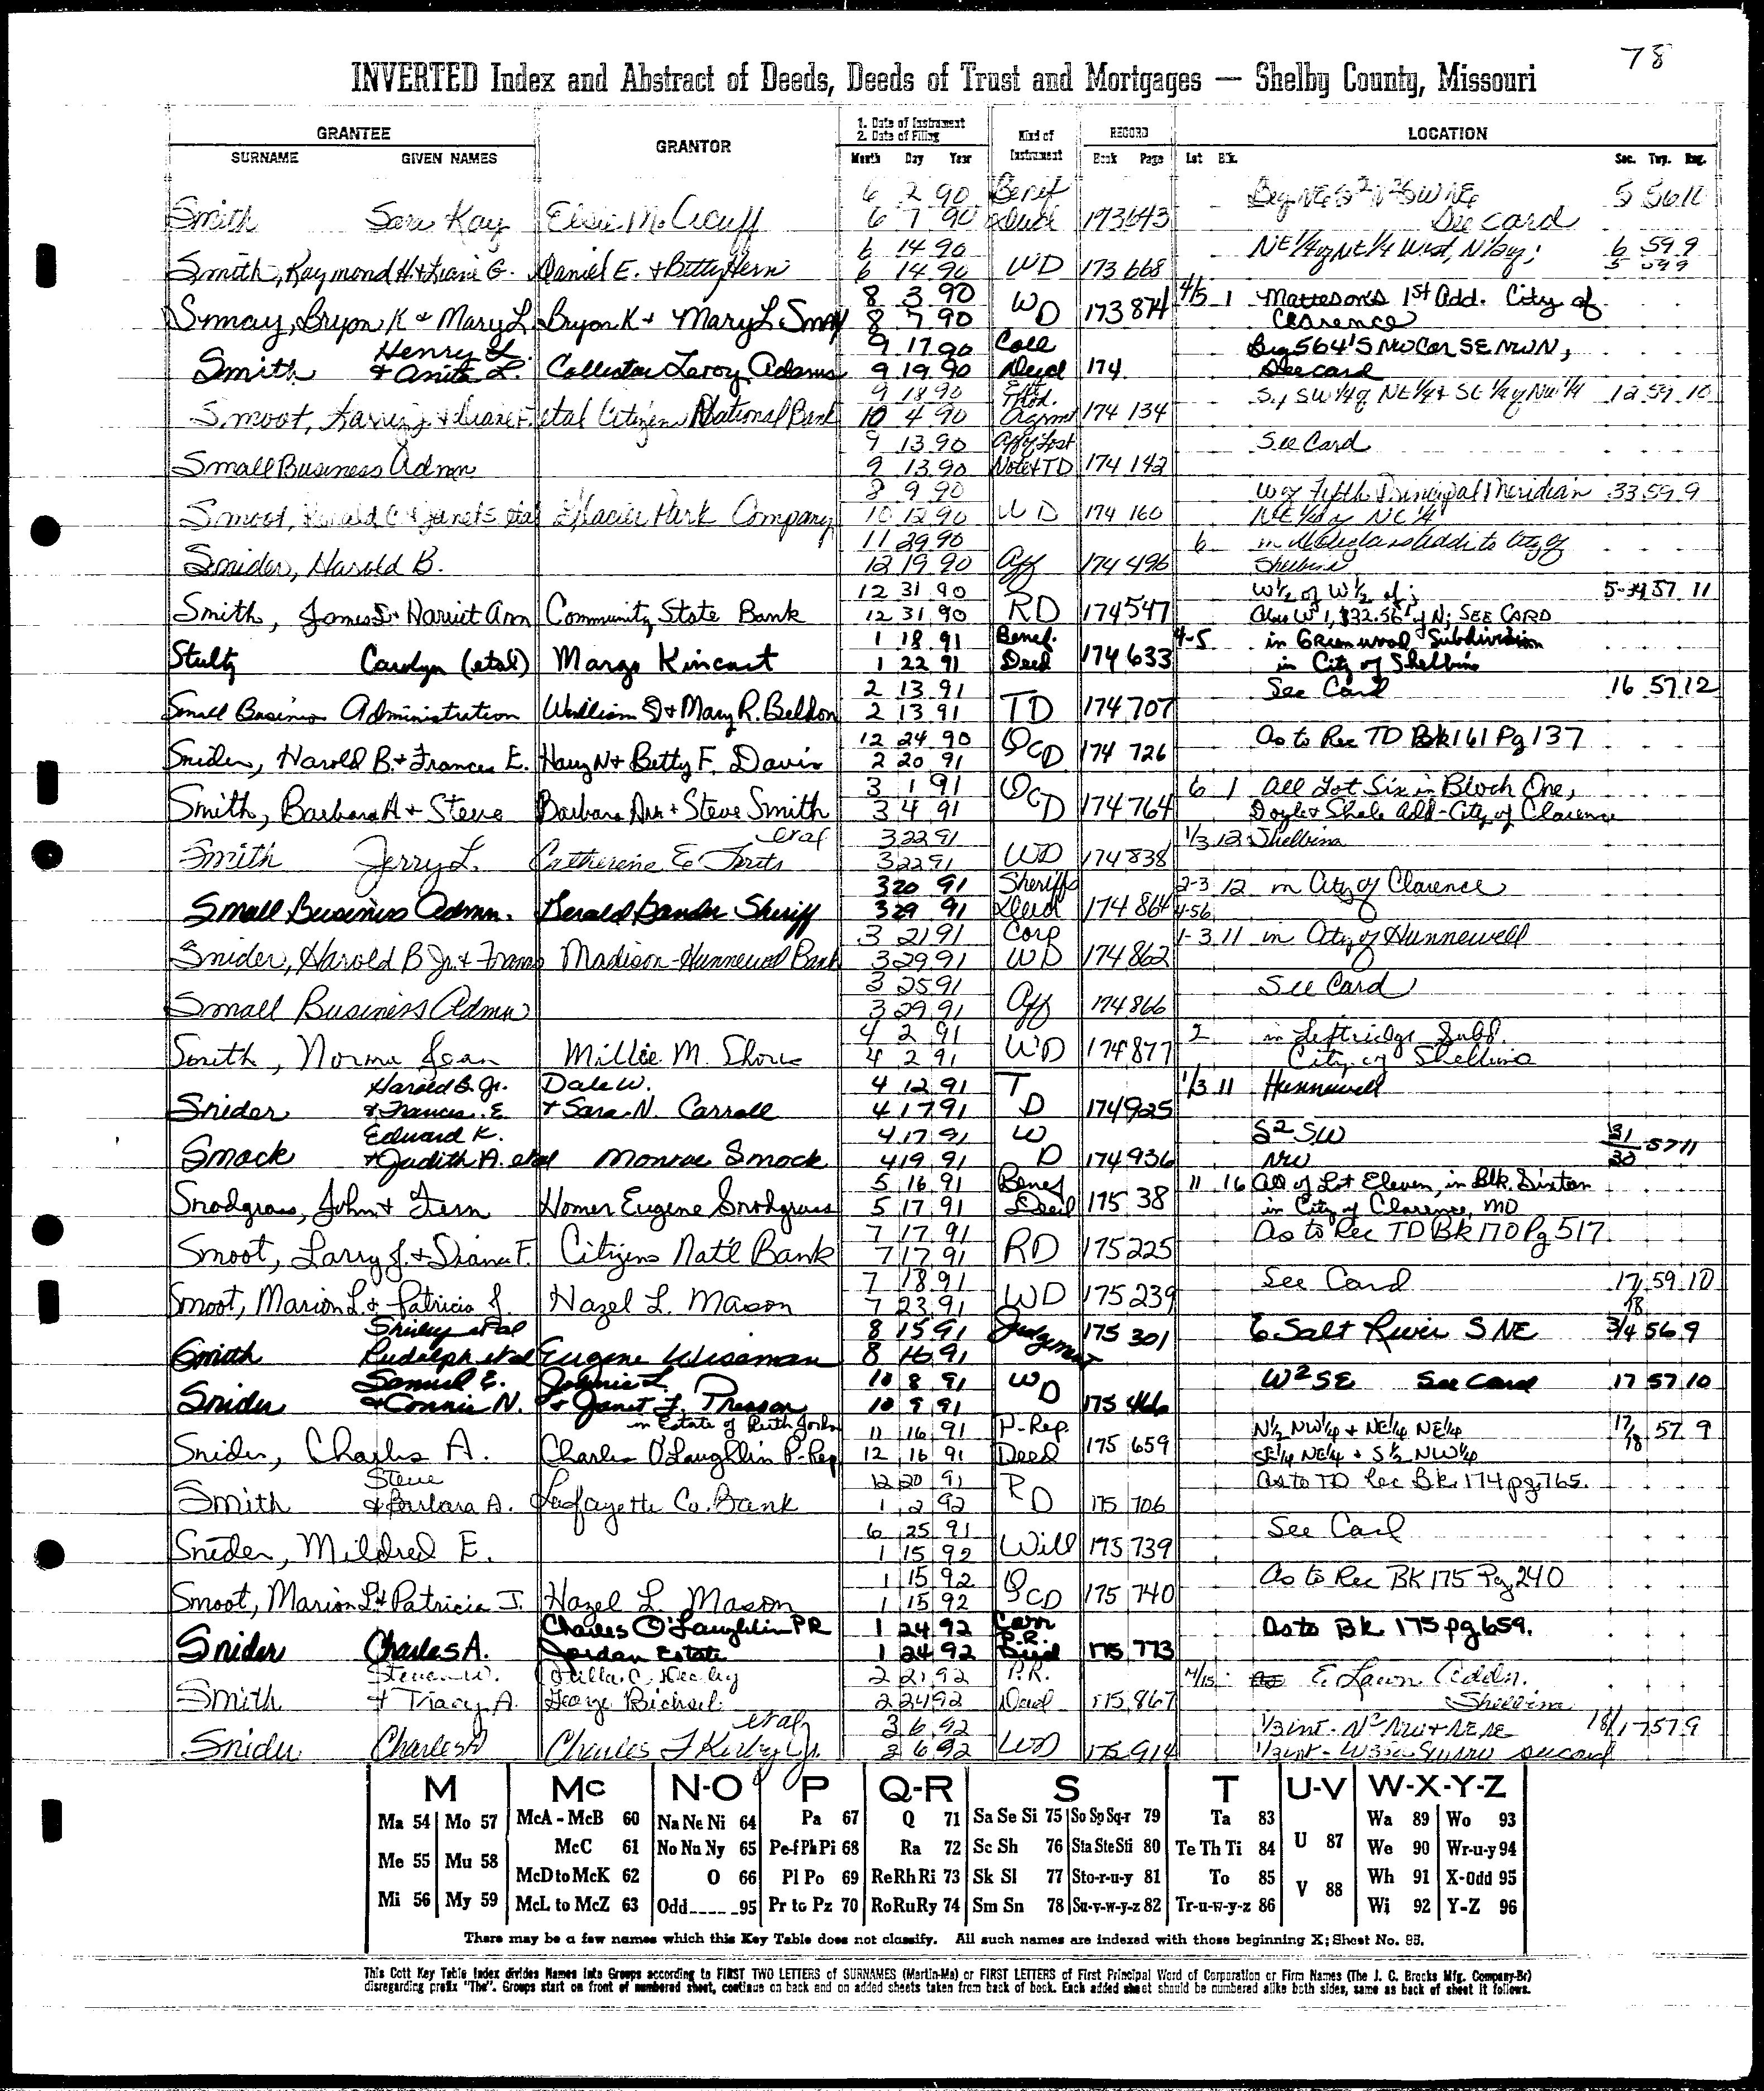 78
INVERTED Index and Abstract of Deeds, Deeds of Trust and Mortgages — Shelby County, Missouri
GRANTEE GRANTOR 1. Date of Instrument 2. Date of Filing Kind of Instrument RECORD LOCATION
SURNAME GIVEN NAMES Month Day Year Book Page Lot Blk. Sec. Twp. Rng.
6 2 90 Benef 5 56 10
Smith Sara Kay Elsie McAcuff 6 7 90 Deed 173 643 See card
6 14 90 NE 1/4 of NE 1/4 6 59 9
Smith, Raymond H. & G. Daniel E. & Betty Hern 6 14 90 WD 173 668 5 59 9
8 3 90 4/5 1 Matteson's 1st Add. City of
Smay, Bryon K & Mary L Bryon K & Mary L Smay 8 7 90 WD 173 874 Clarence
Henry L. 9 17 90 Coll Beg 564'S NW Cor SE NW N,
Smith & Anita L. Collector Leroy Adams 9 19 90 Deed 174 See card
9 18 90 Ext S, SW 1/4 of NE 1/4 & SE 1/4 of NW 1/4 12 59 10
Smoot, Larry J. & Diane F. etal Citizens National Bank 10 4 90 Mod. Agrmt 174 134
9 13 90 Aff Lost See Card
Small Business Admn 9 13 90 Note & TD 174 142
8 9 90 W of Fifth Principal Meridian 33 59 9
Smoot, & Janet S etal Glacier Park Company 10 12 90 WD 174 160 NE 1/4 of NE 1/4
11 29 90 6 Addn to City of
Snider, Harold B. 12 19 90 Aff 174 496 Shelbina
12 31 90 W 1/2 of W 1/2 of; 57 11
Smith, James S & Harriet Ann Community State Bank 12 31 90 RD 174 547 Also W 1,832.56' of N; SEE CARD
1 18 91 Benef. 4-5 in Greenwood Subdivision
Stultz Carolyn (etal) Margo Kincart 1 22 91 Deed 174 633 in City of Shelbina
2 13 91 See Card 16 57 12
Small Business Administration William D & Mary R. Beldon 2 13 91 TD 174 707
12 24 90 As to Rec TD Bk 161 Pg 137
Snider, Harold B. & Frances E. Harry N & Betty F. Davis 2 20 91 QCD 174 726
3 1 91 6 1 All Lot Six in Block One,
Smith, Barbara A & Steve Barbara Ann & Steve Smith 3 4 91 QCD 174 764 Doyle & Shale Add - City of Clarence
etal 3 22 91 1/3 12 Shelbina
Smith Jerry L. Catherine E Frets 3 22 91 WD 174 838
3 20 91 Sheriffs 2-3 12 in City of Clarence
Small Business Admn. Gerald Bander Sheriff 3 29 91 Deed 174 864 4-56
3 21 91 Corp 1-3 11 in City of Hunnewell
Snider, Harold B Jr. & Frances Madison-Hunnewell Bank 3 29 91 WD 174 862
3 25 91 See Card
Small Business Admn 3 29 91 Aff 174 866
4 2 91 2 in Leftridge Subd.
Smith, Norma Jean Millie M. 4 2 91 WD 174 877 City of Shelbina
Harold B. Jr. Dale W. 4 12 91 T 1/3 11 Hunnewell
Snider & Frances E & Sara N. Carroll 4 17 91 D 174 925
Edward K. 4 17 91 W S2 SW 31
Smock & Judith A. etal Monroe Smock 4 19 91 D 174 936 NW 30 57 11
5 16 91 Benef 11 16 All of Lot Eleven, in Blk. Sixteen
Snodgrass, John & Fern Homer Eugene Snodgrass 5 17 91 Deed 175 38 in City of Clarence, MO
7 17 91 As to Rec TD Bk 170 Pg 517
Smoot, Larry J. & Diana F. Citizens Nat'l Bank 7 17 91 RD 175 225
7 18 91 See Card 17 59 10
Smoot, Marion L. & Patricia J. Hazel L. Mason 7 23 91 WD 175 239 18
Shirley etal 8 15 91 Judgement 175 301 E Salt River S NE 3/4 56 9
Smith Rudolph etal Eugene Wiseman 8 16 91
Samuel E. L. 10 8 91 WD W2SE See Card 17 57 10
Snider & Connie N. & Janet L. Presson 10 9 91 175 466
in Estate of Ruth Jordan 11 16 91 P-Rep. N 1/2 NW 1/4 & NE 1/4 NE 1/4 17/18 57 9
Snider, Charles A. Charles O'Laughlin P-Rep 12 16 91 Deed 175 659 SE 1/4 NE 1/4 & S 1/2 NW 1/4
Steve 12 20 91 As to TD Rec Bk 174 pg 765.
Smith & Barbara A. Lafayette Co. Bank 1 2 92 RD 175 706
6 25 91 See Card
Snider, Mildred E. 1 15 92 Will 175 739
1 15 92 As to Rec BK 175 Pg 240
Smoot, Marion L & Patricia J. Hazel L Mason 1 15 92 QCD 175 740
Charles O'Laughlin PR 1 24 92 Corr As to Bk 175 pg 659.
Snider Charles A. Jordan Estate 1 24 92 P.R. Deed 175 773
Steven W. 2 21 92 P.R. E Lawn Addn.
Smith & Tracy A. George 2 24 92 Deed 175 867 Shelbina
etal 3 6 92 1/3 int - N2 NW & NE NE 18/17 57 9
Snider Charles A Charles F Kirby Jr. 3 6 92 WD 175 914 1/3 int -
M Mc N-O P Q-R S T U-V W-X-Y-Z
Ma 54 Mo 57 McA - McB 60 Na Ne Ni 64 Pa 67 Q 71 Sa Se Si 75 So Sp Sq-r 79 Ta 83 U 87 Wa 89 Wo 93
Me 55 Mu 58 McC 61 No Nu Ny 65 Pe-f Ph Pi 68 Ra 72 Sc Sh 76 Sta Ste Sti 80 Te Th Ti 84 V 88 We 90 Wr-u-y 94
McD to McK 62 O 66 Pl Po 69 Re Rh Ri 73 Sk Sl 77 Sto-r-u-y 81 To 85 Wh 91 X-Odd 95
Mi 56 My 59 McL to McZ 63 Odd 95 Pr to Pz 70 Ro Ru Ry 74 Sm Sn 78 Su-v-w-y-z 82 Tr-u-w-y-z 86 Wi 92 Y-Z 96
There may be a few names which this Key Table does not classify. All such names are indexed with those beginning X; Sheet No. 95.
This Cott Key Table Index divides Names into Groups according to FIRST TWO LETTERS of SURNAMES (Martin-Ma) or FIRST LETTERS of First Principal Word of Corporation or Firm Names (The J. C. Brocks Mfg. Company-Br)
disregarding prefix "The". Groups start on front of numbered sheet, continue on back and on added sheets taken from back of book. Each added sheet should be numbered alike both sides, same as back of sheet it follows.